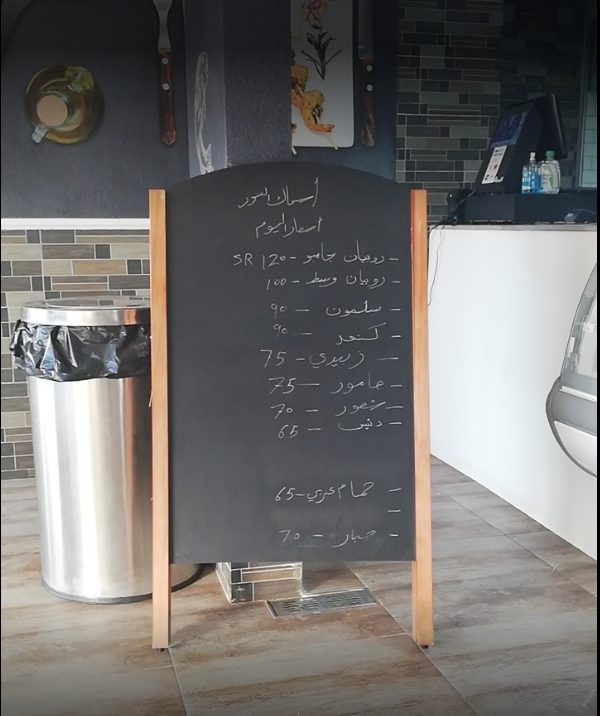 أسماك السور
أسعار اليوم
- روبيان جامبو - 120 SR
- روبيان وسط - 100
- سلمون - 90
- كنعد - 90
- زبيدي - 75
- هامور - 75
- شعور - 70
- دنيس - 65
- حمام عربي - 65
-
- حبار - 70